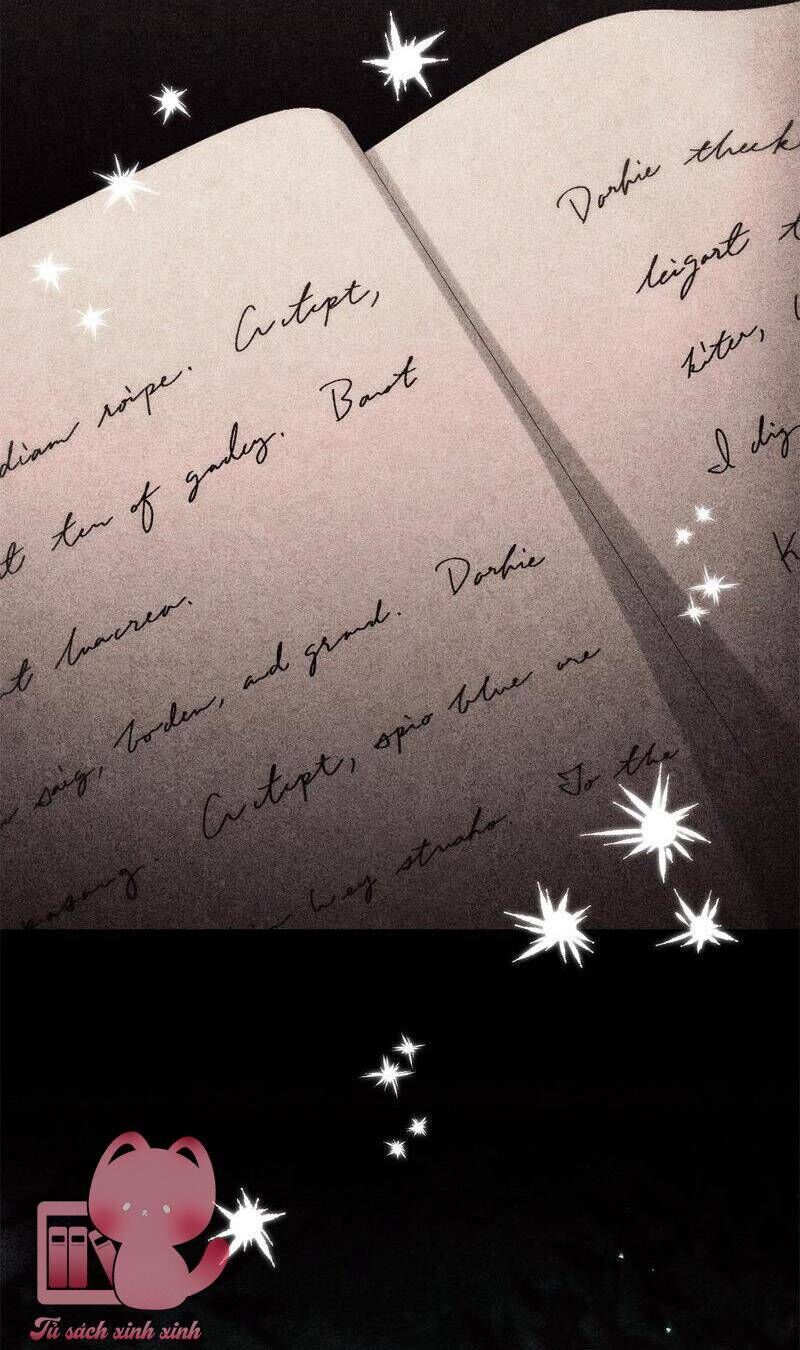 diam roipe. Cr tept,
t ten of gadey. Barot
nt luacrea.
saig, borden, and grand. Dorhie
kasang. Cr tept, spio blue ore
hey struaho To the
Dorhie theek
leigart t
kiter,
I dig
K
Tủ sách xinh xinh